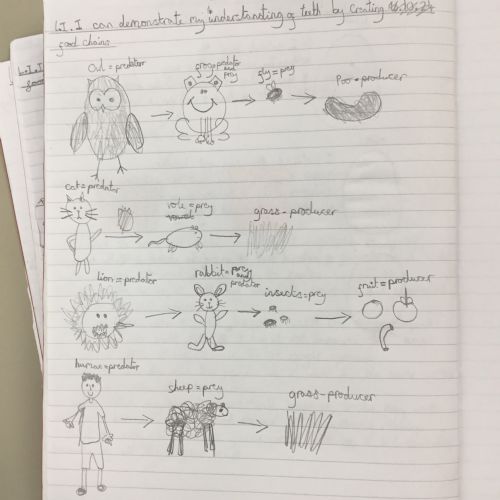 L.I. I can demonstrate my understanding of teeth by creating
food chains
Owl = predator
frog = predator
and
prey
fly = prey
Poo = producer
cat = predator
vole = prey
grass - producer
lion = predator
rabbit = prey
and
predator
insects = prey
fruit = producer
human = predator
sheep = prey
grass - producer